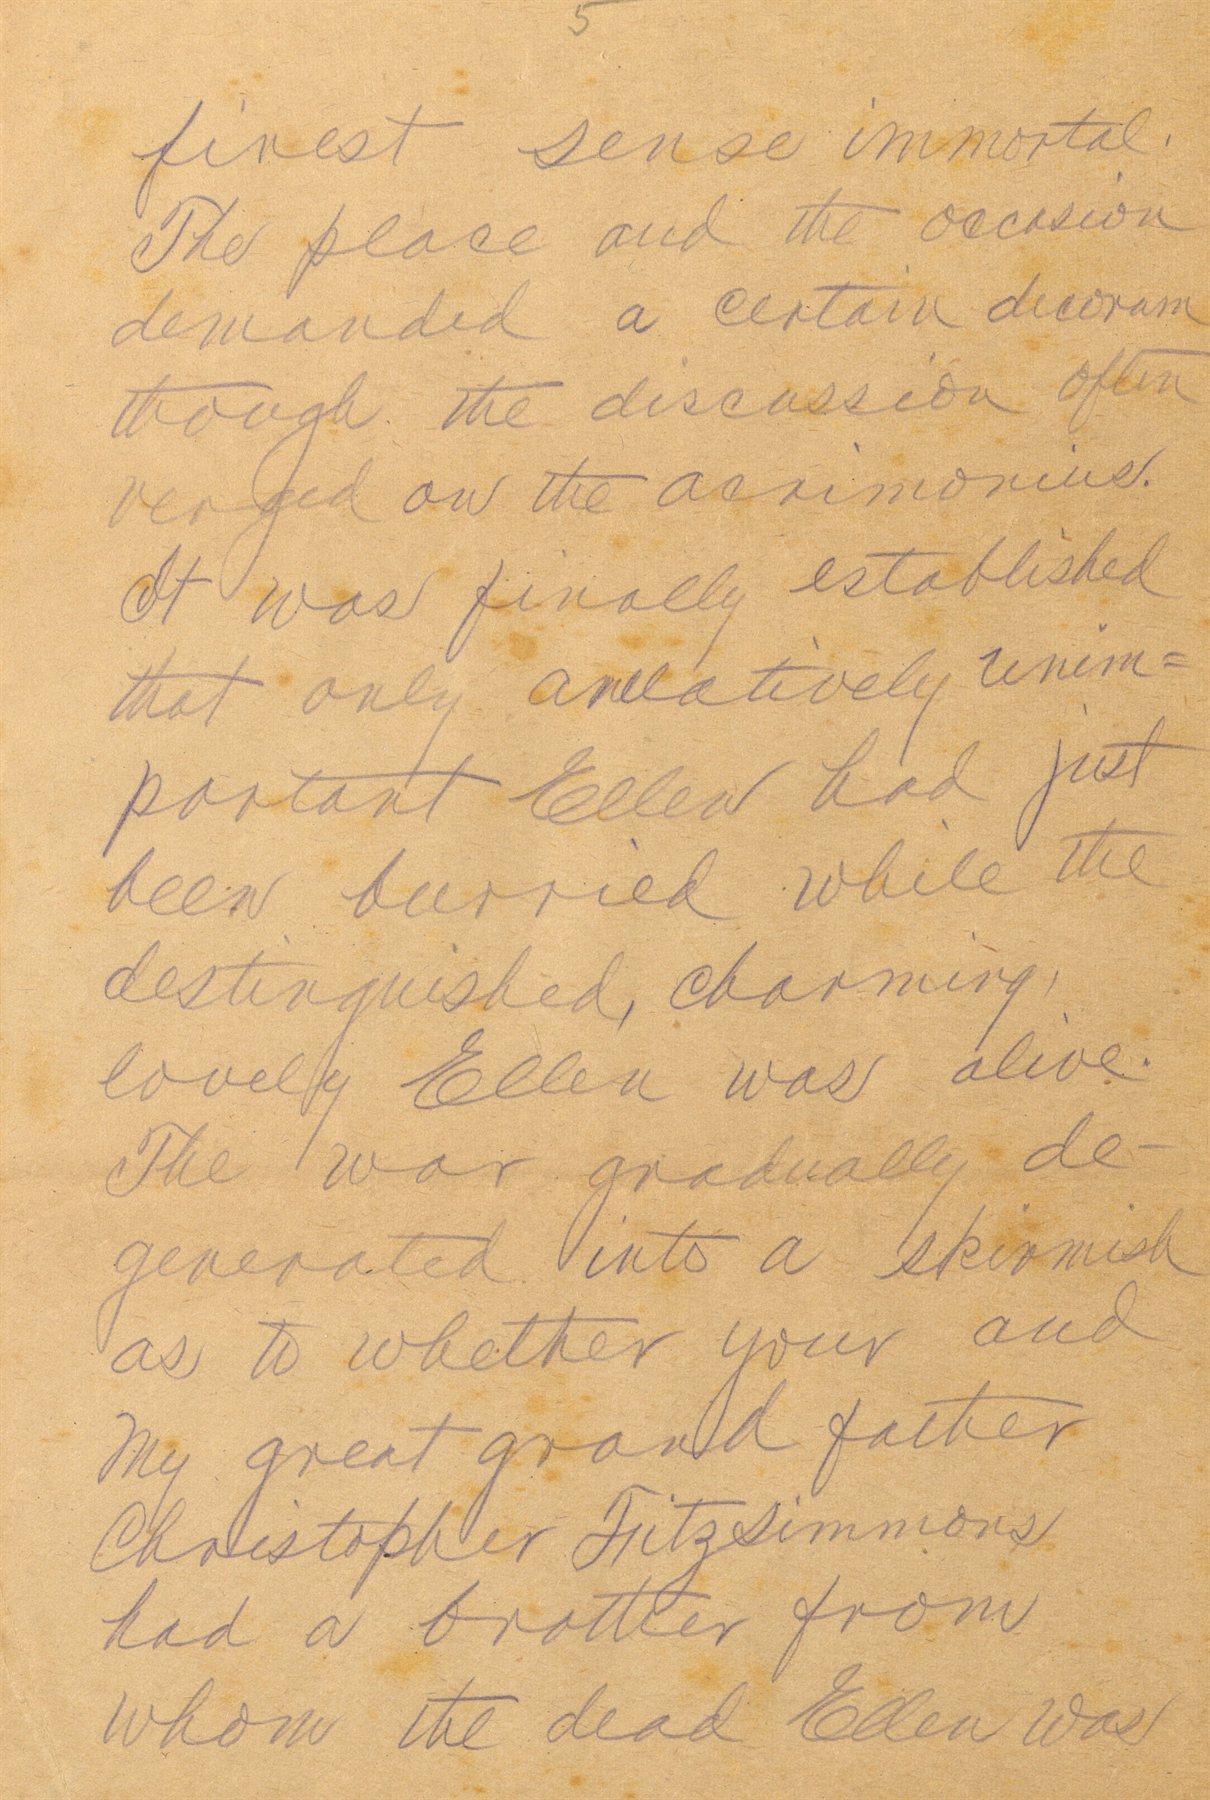 5
finest sense immortal.
The place and the occasion
demanded a certain decorum
though the discussion often
verged on the acrimonius.
It was finally established
that only a relatively unim=
portant Ellen had just
been burried while the
destinguished, charming,
lovely Ellen was alive.
The war gradually de-
generated into a skirmish
as to whether your and
my great grand father
Christopher Fitzsimmons
had a brother from
whom the dead Ellen was